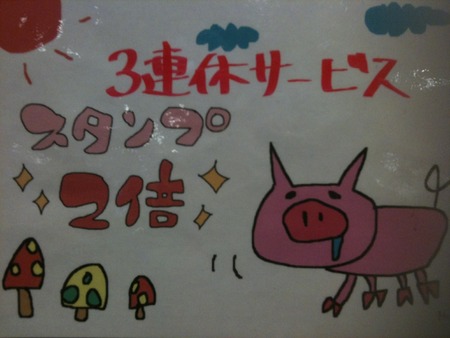 3連休サービス
スタンプ
2倍